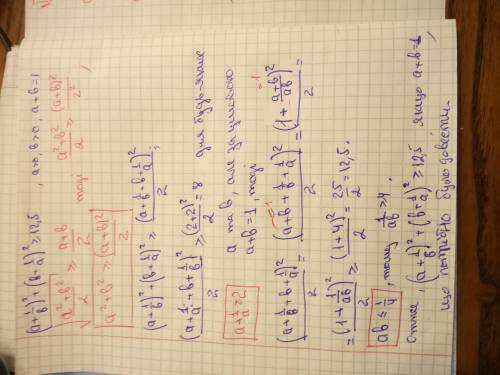 (a+1/b)² + (b+1/a)² ≥ 12,5 , a>0, b>0, a+b=1
√((a²+b²)/2) ≥ (a+b)/2 тоді (a²+b²)/2 ≥ (a+b)²/2² ,
a²+b² ≥ (a+b)²/2
(a+1/b)² + (b+1/a)² ≥ (a+1/b+b+1/a)²/2 ;
(a+1/a+b+1/b)²/2 ≥ (2+2)²/2 = 8 для будь-яких
a+1/a ≥ 2 a та b, але за умовою
a+b=1, тоді
(a+1/b+b+1/a)²/2 = (a+b+1/b+1/a)²/2 = (1+(a+b)/ab)²/2 =
= (1+1/ab)²/2 ≥ (1+4)²/2 = 25/2 = 12,5.
ab ≤ 1/4 , тому 1/ab ≥ 4.
Отже (a+1/b)² + (b+1/a)² ≥ 12,5 , якщо a+b=1
що потрібно було довести.